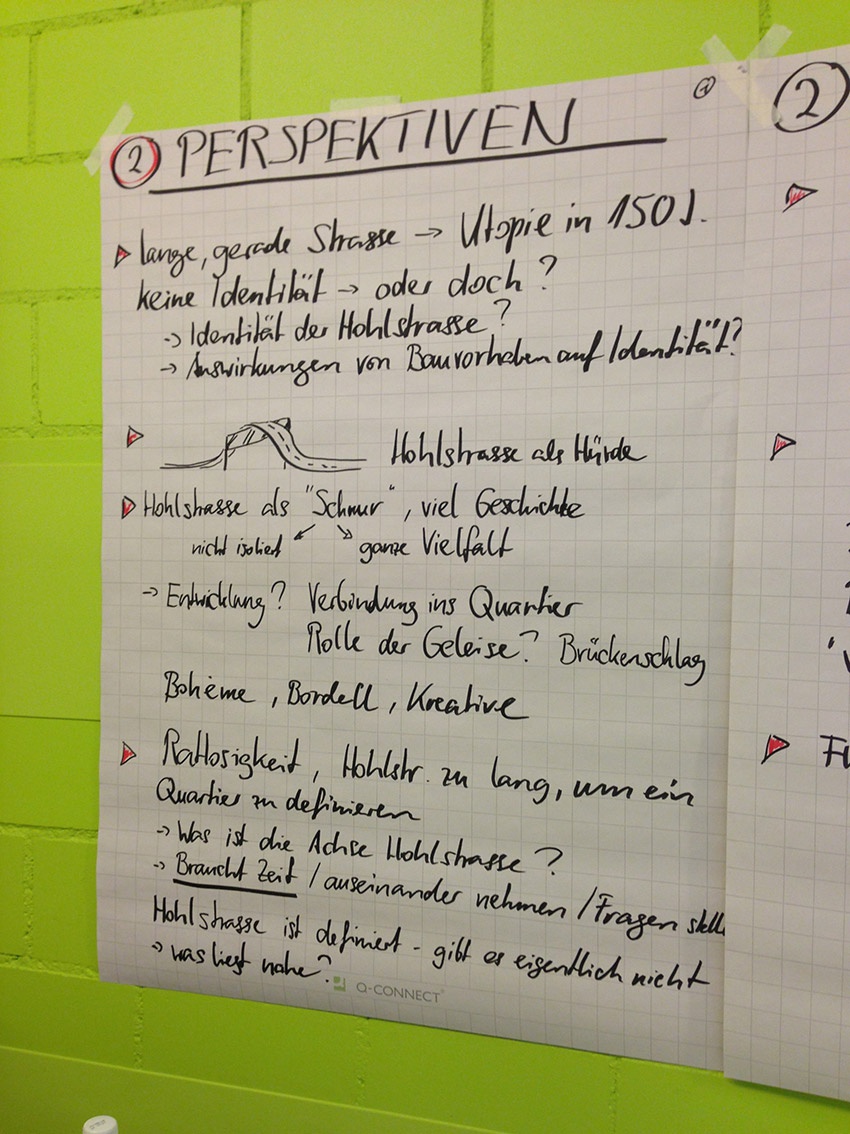 ② PERSPEKTIVEN
lange, gerade Strasse → Utopie in 150 J.
keine Identität → oder doch?
→ Identität der Hohlstrasse?
→ Auswirkungen von Bauvorhaben auf Identität?
Hohlstrasse als Hürde
Hohlstrasse als "Schnur", viel Geschichte
nicht isoliert ganze Vielfalt
→ Entwicklung? Verbindung ins Quartier
Rolle der Geleise? Brückenschlag
Bohème, Bordell, Kreative
Ratlosigkeit, Hohlstr. zu lang, um ein
Quartier zu definieren
→ Was ist die Achse Hohlstrasse?
→ Braucht Zeit / auseinander nehmen / Fragen stell
Hohlstrasse ist definiert - gibt es eigentlich nicht
→ was liegt nahe?
Q-CONNECT
②